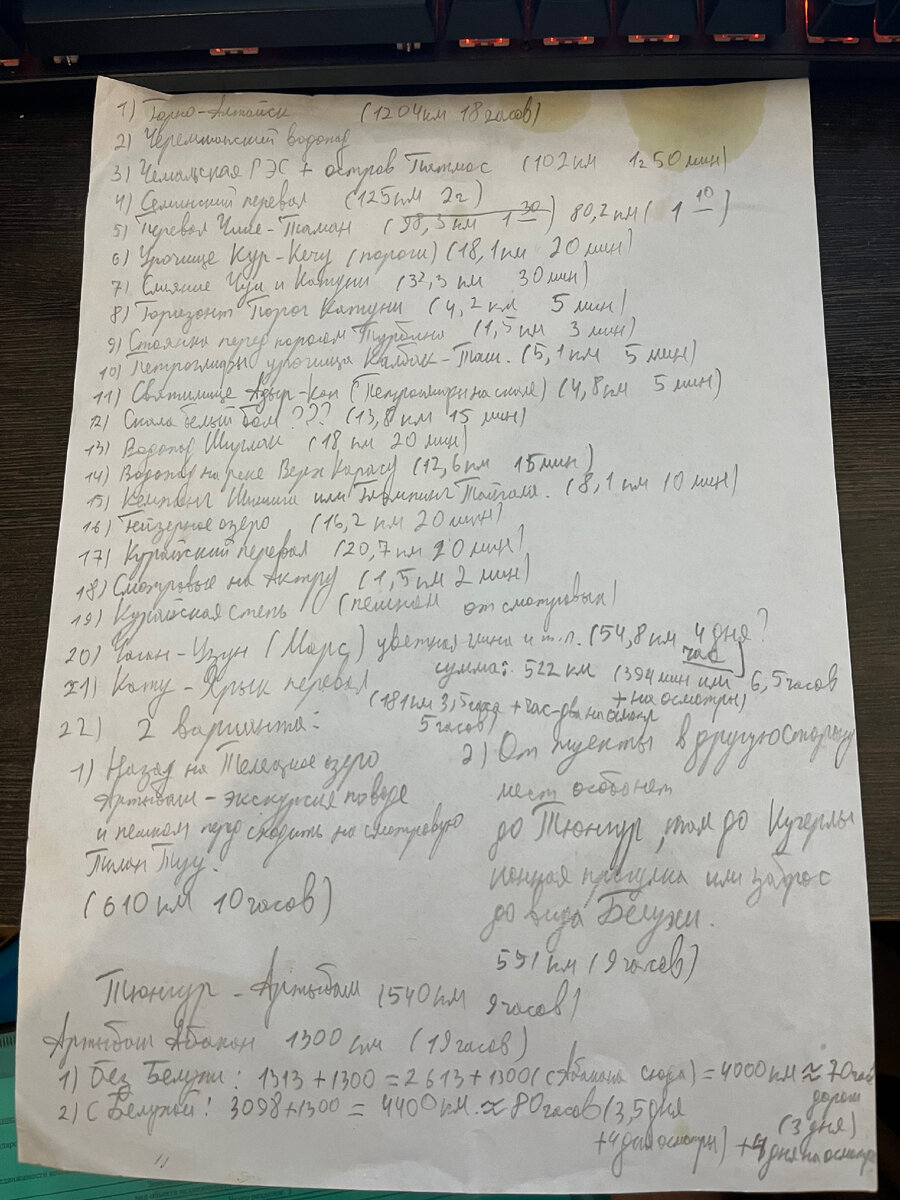 1) Горно-Алтайск (1204 км 18 часов)
2) Черемшанский водопад
3) Чемальская ГЭС + остров Патмос (102 км 1ч 50 мин)
4) Семинский перевал (125 км 2ч)
5) Перевал Чике-Таман (98,3 км 1 30) 80,2 км (1 10)
6) Урочище Кур-Кечу (пороги) (18,1 км 20 мин)
7) Слияние Чуи и Катуни (32,3 км 30 мин)
8) Горизонт Порог Катуни (4,2 км 5 мин)
9) Стоянка перед порогом Турбина (1,5 км 3 мин)
10) Петроглифы урочища Калбак-Таш. (5,1 км 5 мин)
11) Святилище Адыр-Кан (Петроглифы на скале) (4,8 км 5 мин)
12) Скала белый бом ??? (13,8 км 15 мин)
13) Водопад Ширлак (18 км 20 мин)
14) Водопад на реке Верх Карасу (12,6 км 15 мин)
15) Кемпинг Шишига или Глэмпинг (8,1 км 10 мин)
16) Гейзерное озеро (16,2 км 20 мин)
17) Курайский перевал (20,7 км 20 мин)
18) Смотровые на Актру (1,5 км 2 мин)
19) Курайская степь (пешком от смотровых)
20) Чаган-Узун (Марс) цветная глина и т.п. (54,8 км час) 4 дня?
сумма: 522 км (394 мин или 6,5 часов
+ на осмотры)
21) Кату-Ярык перевал
(181 км 3,5 часа + час-два на осмотр
5 часов)
22) 2 варианта:
1) Назад на Телецкое озеро
Артыбаш - экскурсия по воде
и пешком сходить на смотровую
Тилан Туу.
(610 км 10 часов)
2) От туекты в другую сторону
мест особо нет
до Тюнгур, там до Кучерлы
конная прогулка или заброс
до вида Белухи.
551 км (9 часов)
Тюнгур - Артыбаш (540 км 9 часов)
Артыбаш Абакан 1300 км (19 часов)
1) Без Белухи: 1313 + 1300 = 2613 + 1300 (с Абакана сюда) = 4000 км ≈ 70 час
дороги
(3 дня)
+ 4 дня на осмотры
2) С Белухой: 3098 + 1300 = 4400 км. ≈ 80 часов (3,5 дня
+ 4 дня осмотры)